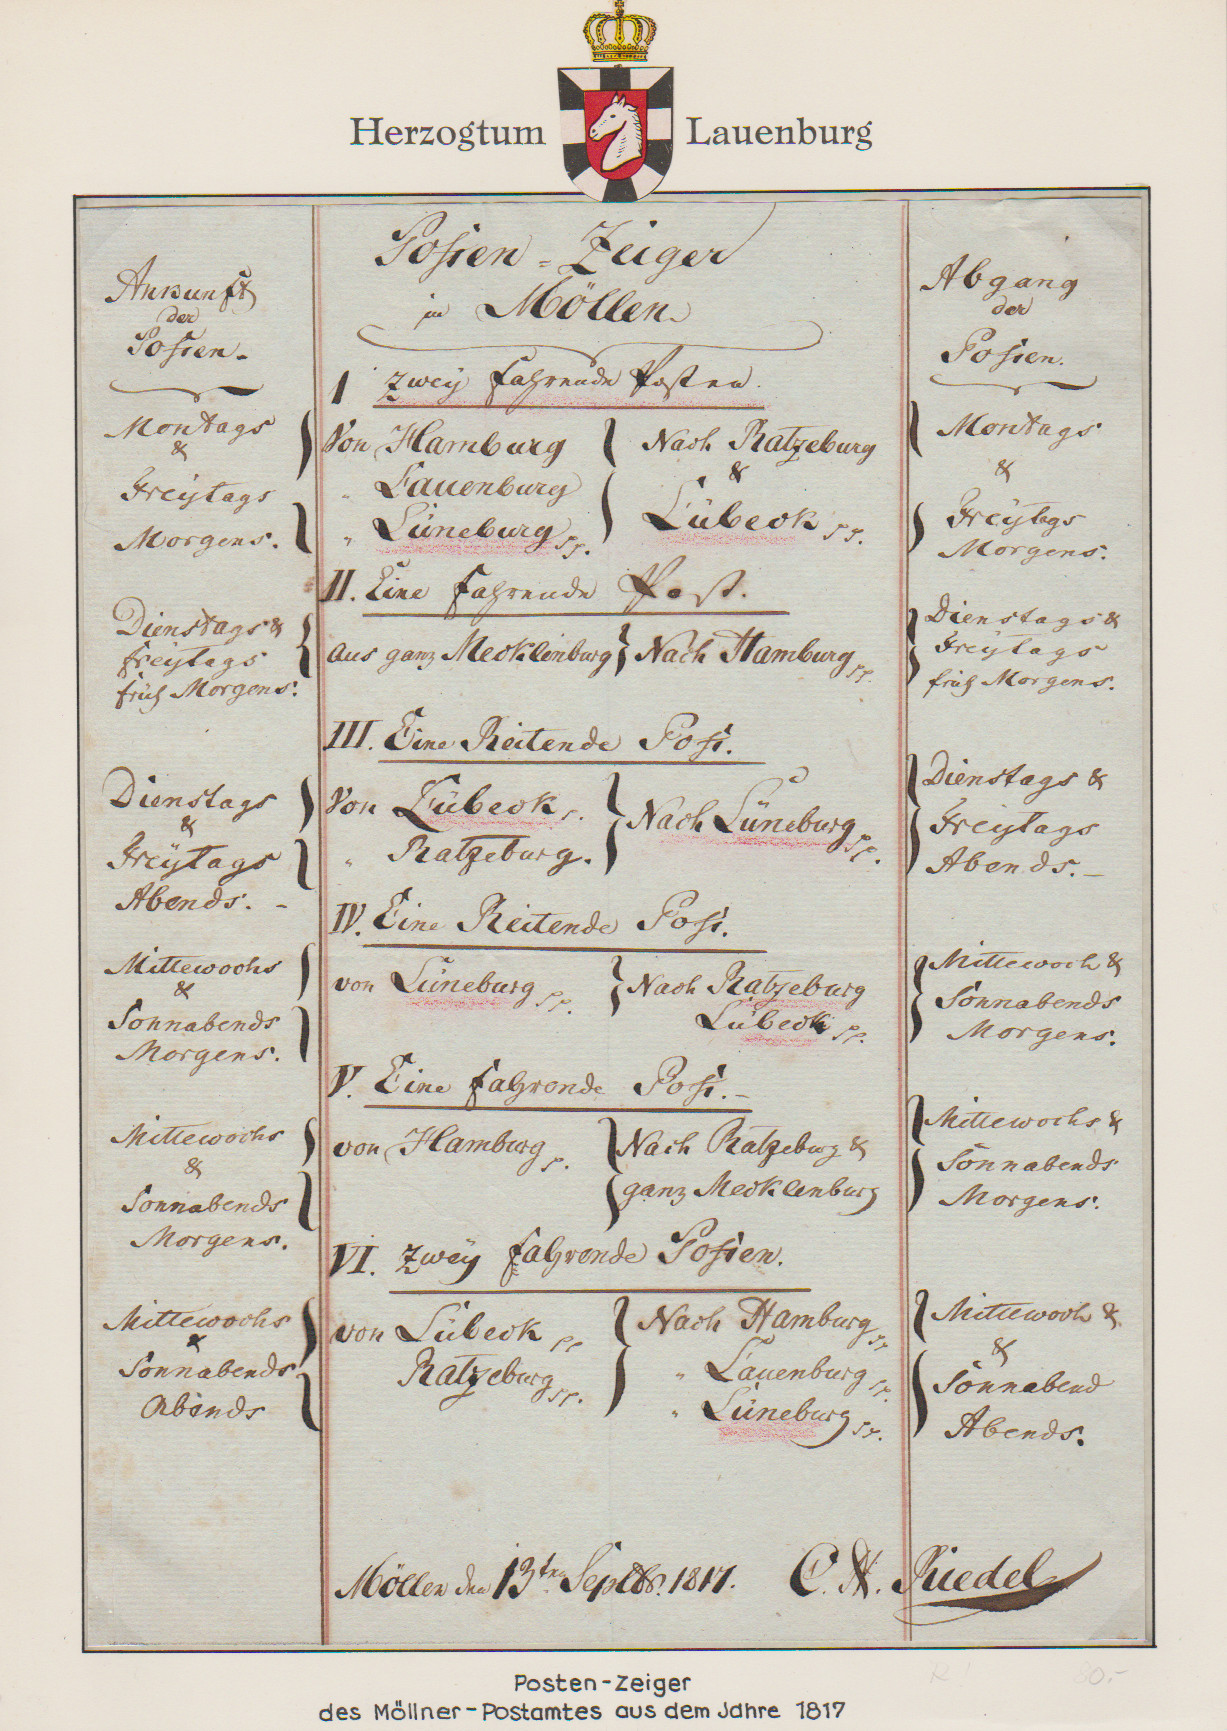 Herzogtum Lauenburg
Posten-Zeiger
in Möllen.
Ankunft
der
Posten.
Abgang
der
Posten.
I Zwey fahrende Posten.
Montags
&
Freytags
Morgens.
Von Hamburg
" Lauenburg
" Lüneburg pp.
Nach Ratzeburg
&
Lübeck pp.
Montags
&
Freytags
Morgens.
II. Eine fahrende Post.
Dienstags &
freytags
früh Morgens.
aus ganz Mecklenburg
Nach Hamburg pp.
Dienstags &
Freytags
früh Morgens.
III. Eine Reitende Post.
Dienstags
&
Freÿtags
Abends. -
Von Lübeck p.
" Ratzeburg.
Nach Lüneburg pp.
Dienstags &
Freytags
Abends. -
IV. Eine Reitende Post.
Mittewochs
&
Sonnabends
Morgens.
von Lüneburg pp.
Nach Ratzeburg
Lübeck pp.
Mittewoch &
Sonnabends
Morgens.
V. Eine fahrende Post. -
Mittewochs
&
Sonnabends
Morgens.
von Hamburg p.
Nach Ratzeburg &
ganz Mecklenburg
Mittewochs &
Sonnabends
Morgens.
VI. Zweÿ fahrende Posten.
Mittewochs
&
Sonnabends
Abends
von Lübeck pp
Ratzeburg pp.
Nach Hamburg pp
" Lauenburg pp.
" Lüneburg pp.
Mittewoch &
&
Sonnabend
Abends.
Möllen den 13ten Septbr. 1817. C. H. Riedel
Posten-Zeiger
des Möllner-Postamtes aus dem Jahre 1817